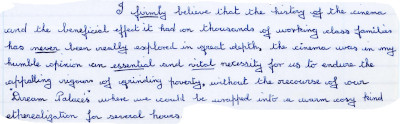 I firmly believe that the history of the cinema
and the beneficial effect it had on thousands of working class families
has never been really explored in great depth, the cinema was in my
humble opinion an essential and vital necessity for us to endure the
appalling rigours of grinding poverty, without the recourse of our
"Dream Palaces" where we could be wrapped into a warm cosy kind
etherealization for several hours.